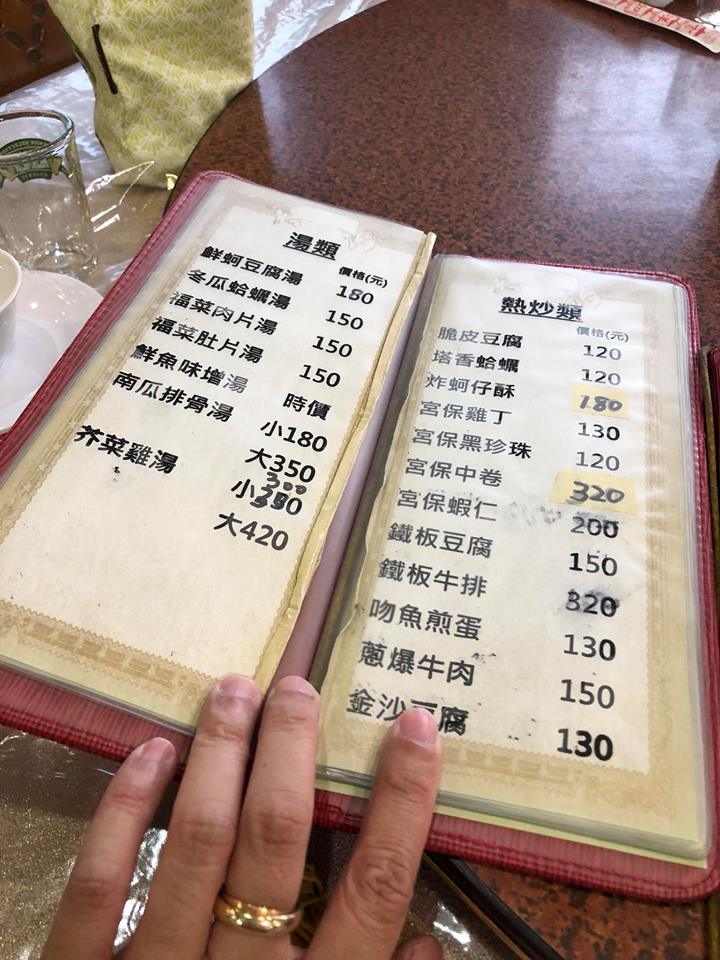 湯類
價格(元)
鮮蚵豆腐湯 180
冬瓜蛤蠣湯 150
福菜肉片湯 150
福菜肚片湯 150
鮮魚味增湯 時價
南瓜排骨湯 小180
大350
芥菜雞湯 小300
大420
熱炒類
價格(元)
脆皮豆腐 120
塔香蛤蠣 120
炸蚵仔酥 180
宮保雞丁 130
宮保黑珍珠 120
宮保中卷 320
宮保蝦仁 200
鐵板豆腐 150
鐵板牛排 320
吻魚煎蛋 130
蔥爆牛肉 150
金沙豆腐 130